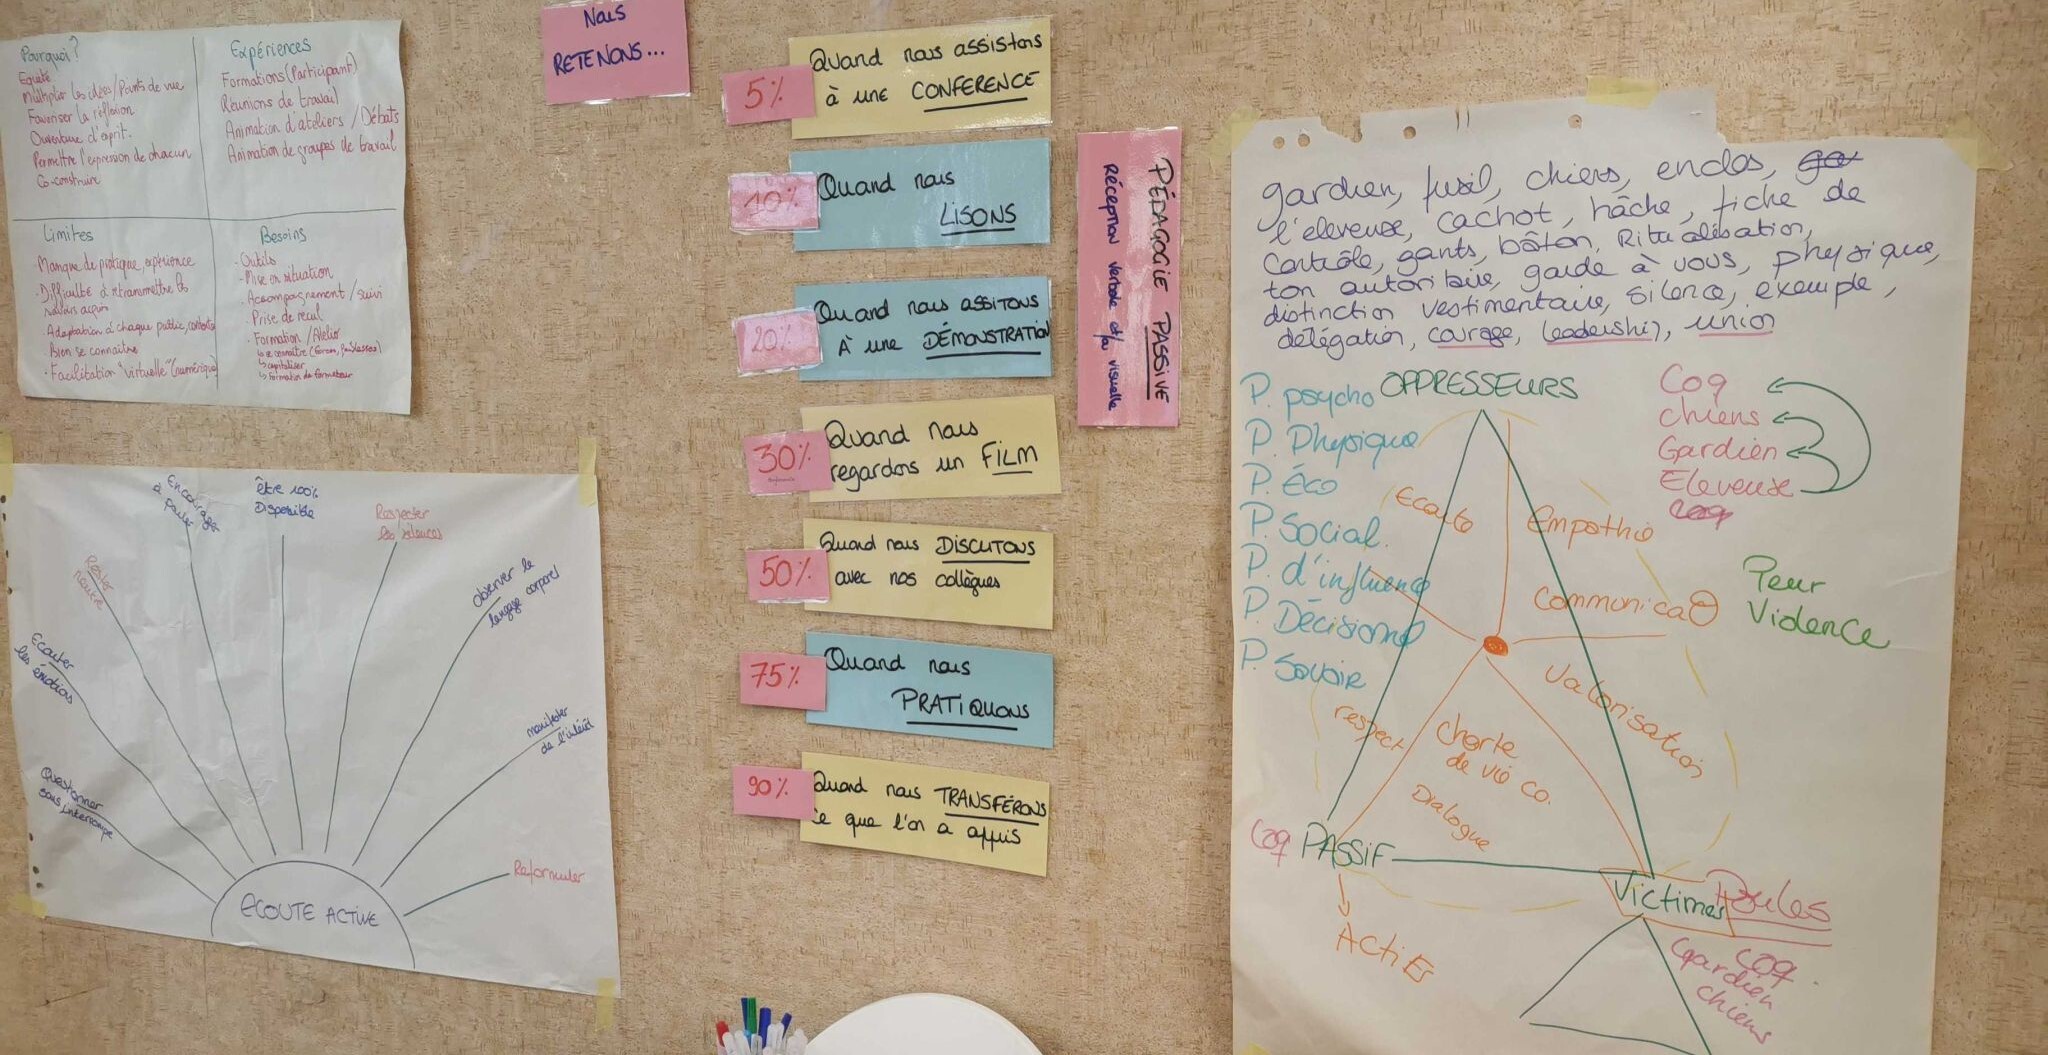 Pourquoi?
Equité
Multiplier les idées/Points de vue
Favoriser la réflexion
Ouverture d'esprit.
Permettre l'expression de chacun
Co-construire
Expériences
Formations (Participant)
Réunions de travail
Animation d'ateliers / Débats
Animation de groupes de travail
Limites
Manque de pratique, expérience
. Difficulté à retransmettre les
savoirs acquis
. Adaptation à chaque public, contexte
. Bien se connaître
. Facilitation "virtuelle" (numérique)
Besoins
- Outils
- Mise en situation
- Accompagnement / suivi
- Prise de recul
- Formation / Atelier
↳ se connaître (forces, faiblesses)
↳ capitaliser
↳ formation de formateur
Questionner
sans interrompre
Ecouter
les émotions
Rester
neutre
Encourager
à parler
être 100%
Disponible
Respecter
les silences
Observer le
langage corporel
manifester
de l'intérêt
Reformuler
ECOUTE ACTIVE
Nous
RETENONS...
5%
Quand nous assistons
à une CONFERENCE
10%
Quand nous
LISONS
20%
Quand nous ASSITONS
À une DÉMONSTRATION
30%
Quand nous
regardons un FILM
50%
Quand nous DISCUTONS
avec nos collègues
75%
Quand nous
PRATIQUONS
90%
Quand nous TRANSFÉRONS
ce que l'on a appris
PÉDAGOGIE PASSIVE
RÉCEPTION verbale et/ou visuelle
gardien, fusil, chiens, enclos,
l'eleveuse, cachot, hâche, fiche de
contrôle, gants, bâton, Ritualisation,
ton autoritaire, garde à vous, physique,
distinction vestimentaire, silence, exemple,
délégation, courage, leadership, union
P. psycho
P. Physique
P. Éco
P. Social.
P. d'influence
P. Décisionel
P. Savoir
OPPRESSEURS
Coq
chiens
Gardien
Eleveuse
Coq
Ecoute
Empathie
Communica
Peur
Violence
Valorisation
respect
Charte
de vie co.
Dialogue
Coq PASSIF
Victimes Poules
Actifs
Coq
Gardien
chiens